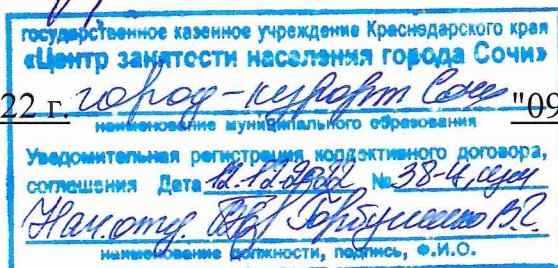 государственное казенное учреждение Краснодарского края
«Центр занятости населения города Сочи»
22 г. город-курорт Сочи "09
наименование муниципального образования
Уведомительная регистрация коллективного договора,
соглашения Дата 12.12.2022 № 38-4,
Нач. отд. Горбунова В.Г.
наименование должности, подпись, Ф.И.О.